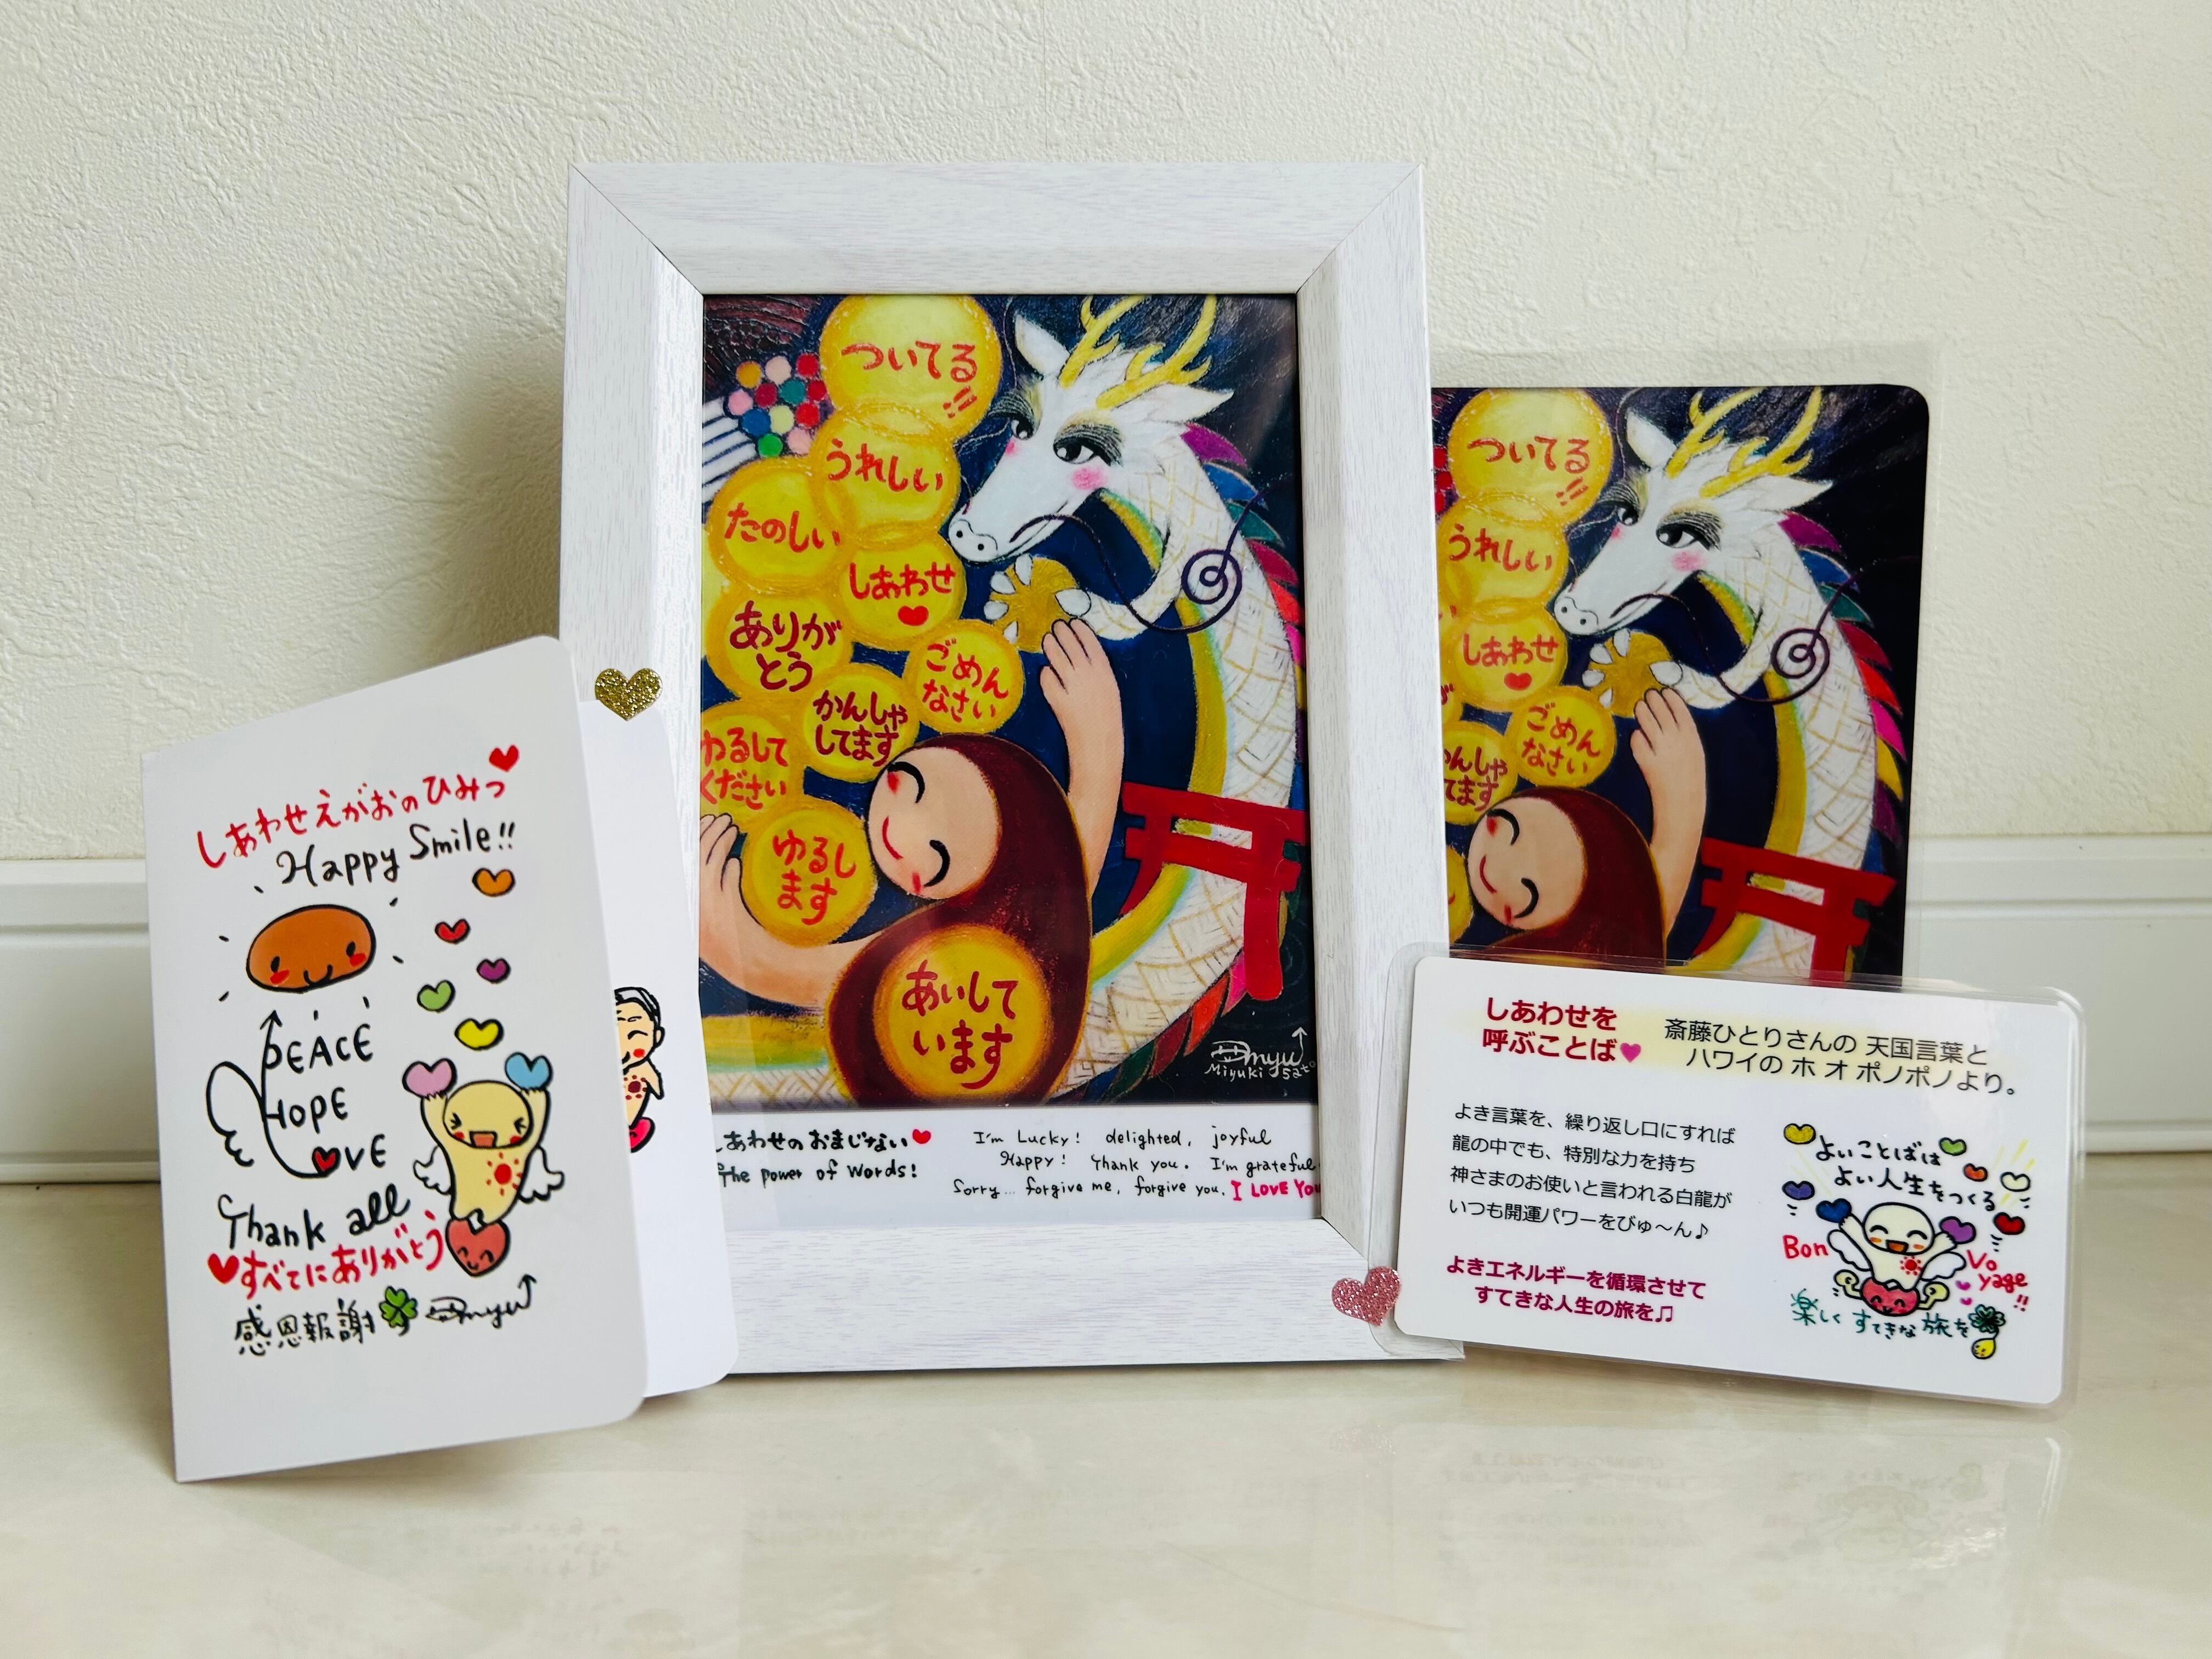 しあわせえがおのひみつ
Happy Smile!!
PEACE
HOPE
LOVE
Thank all
すべてにありがとう
感恩報謝
ついてる!!
うれしい
たのしい
しあわせ
ありが
とう
ごめん
なさい
かんしゃ
してます
ゆるして
ください
ゆるし
ます
あいして
います
Miyuki Sato
しあわせのおまじない
The power of words!
I'm Lucky! delighted, joyful
Happy! Thank you. I'm grateful
Sorry... forgive me, forgive you. I LOVE YOU
ついてる!!
うれしい
しあわせ
ごめん
なさい
んしゃ
てます
しあわせを
呼ぶことば♥
斎藤ひとりさんの 天国言葉と
ハワイの ホ オ ポノポノより。
よき言葉を、繰り返し口にすれば
龍の中でも、特別な力を持ち
神さまのお使いと言われる白龍が
いつも開運パワーをびゅ〜ん♪
よきエネルギーを循環させて
すてきな人生の旅を♫
よいことばは
よい人生をつくる
Bon
Vo
yage!!
楽しく すてきな 旅を